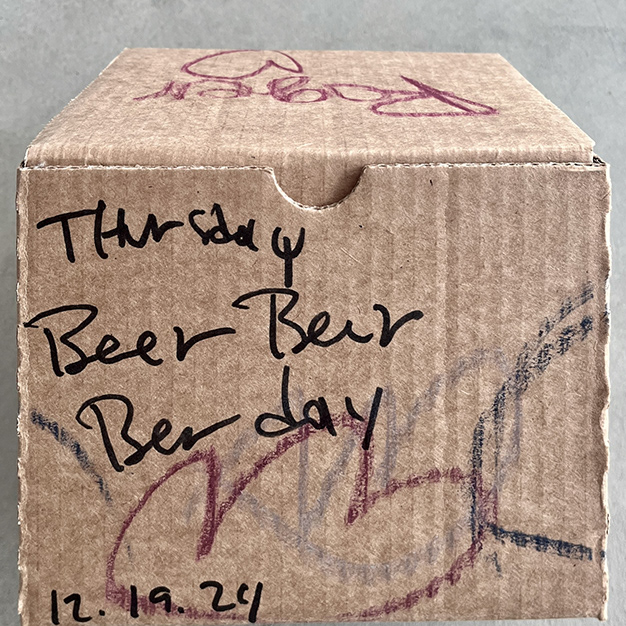 Thursday
Beer Beer
Ber day
12.19.24